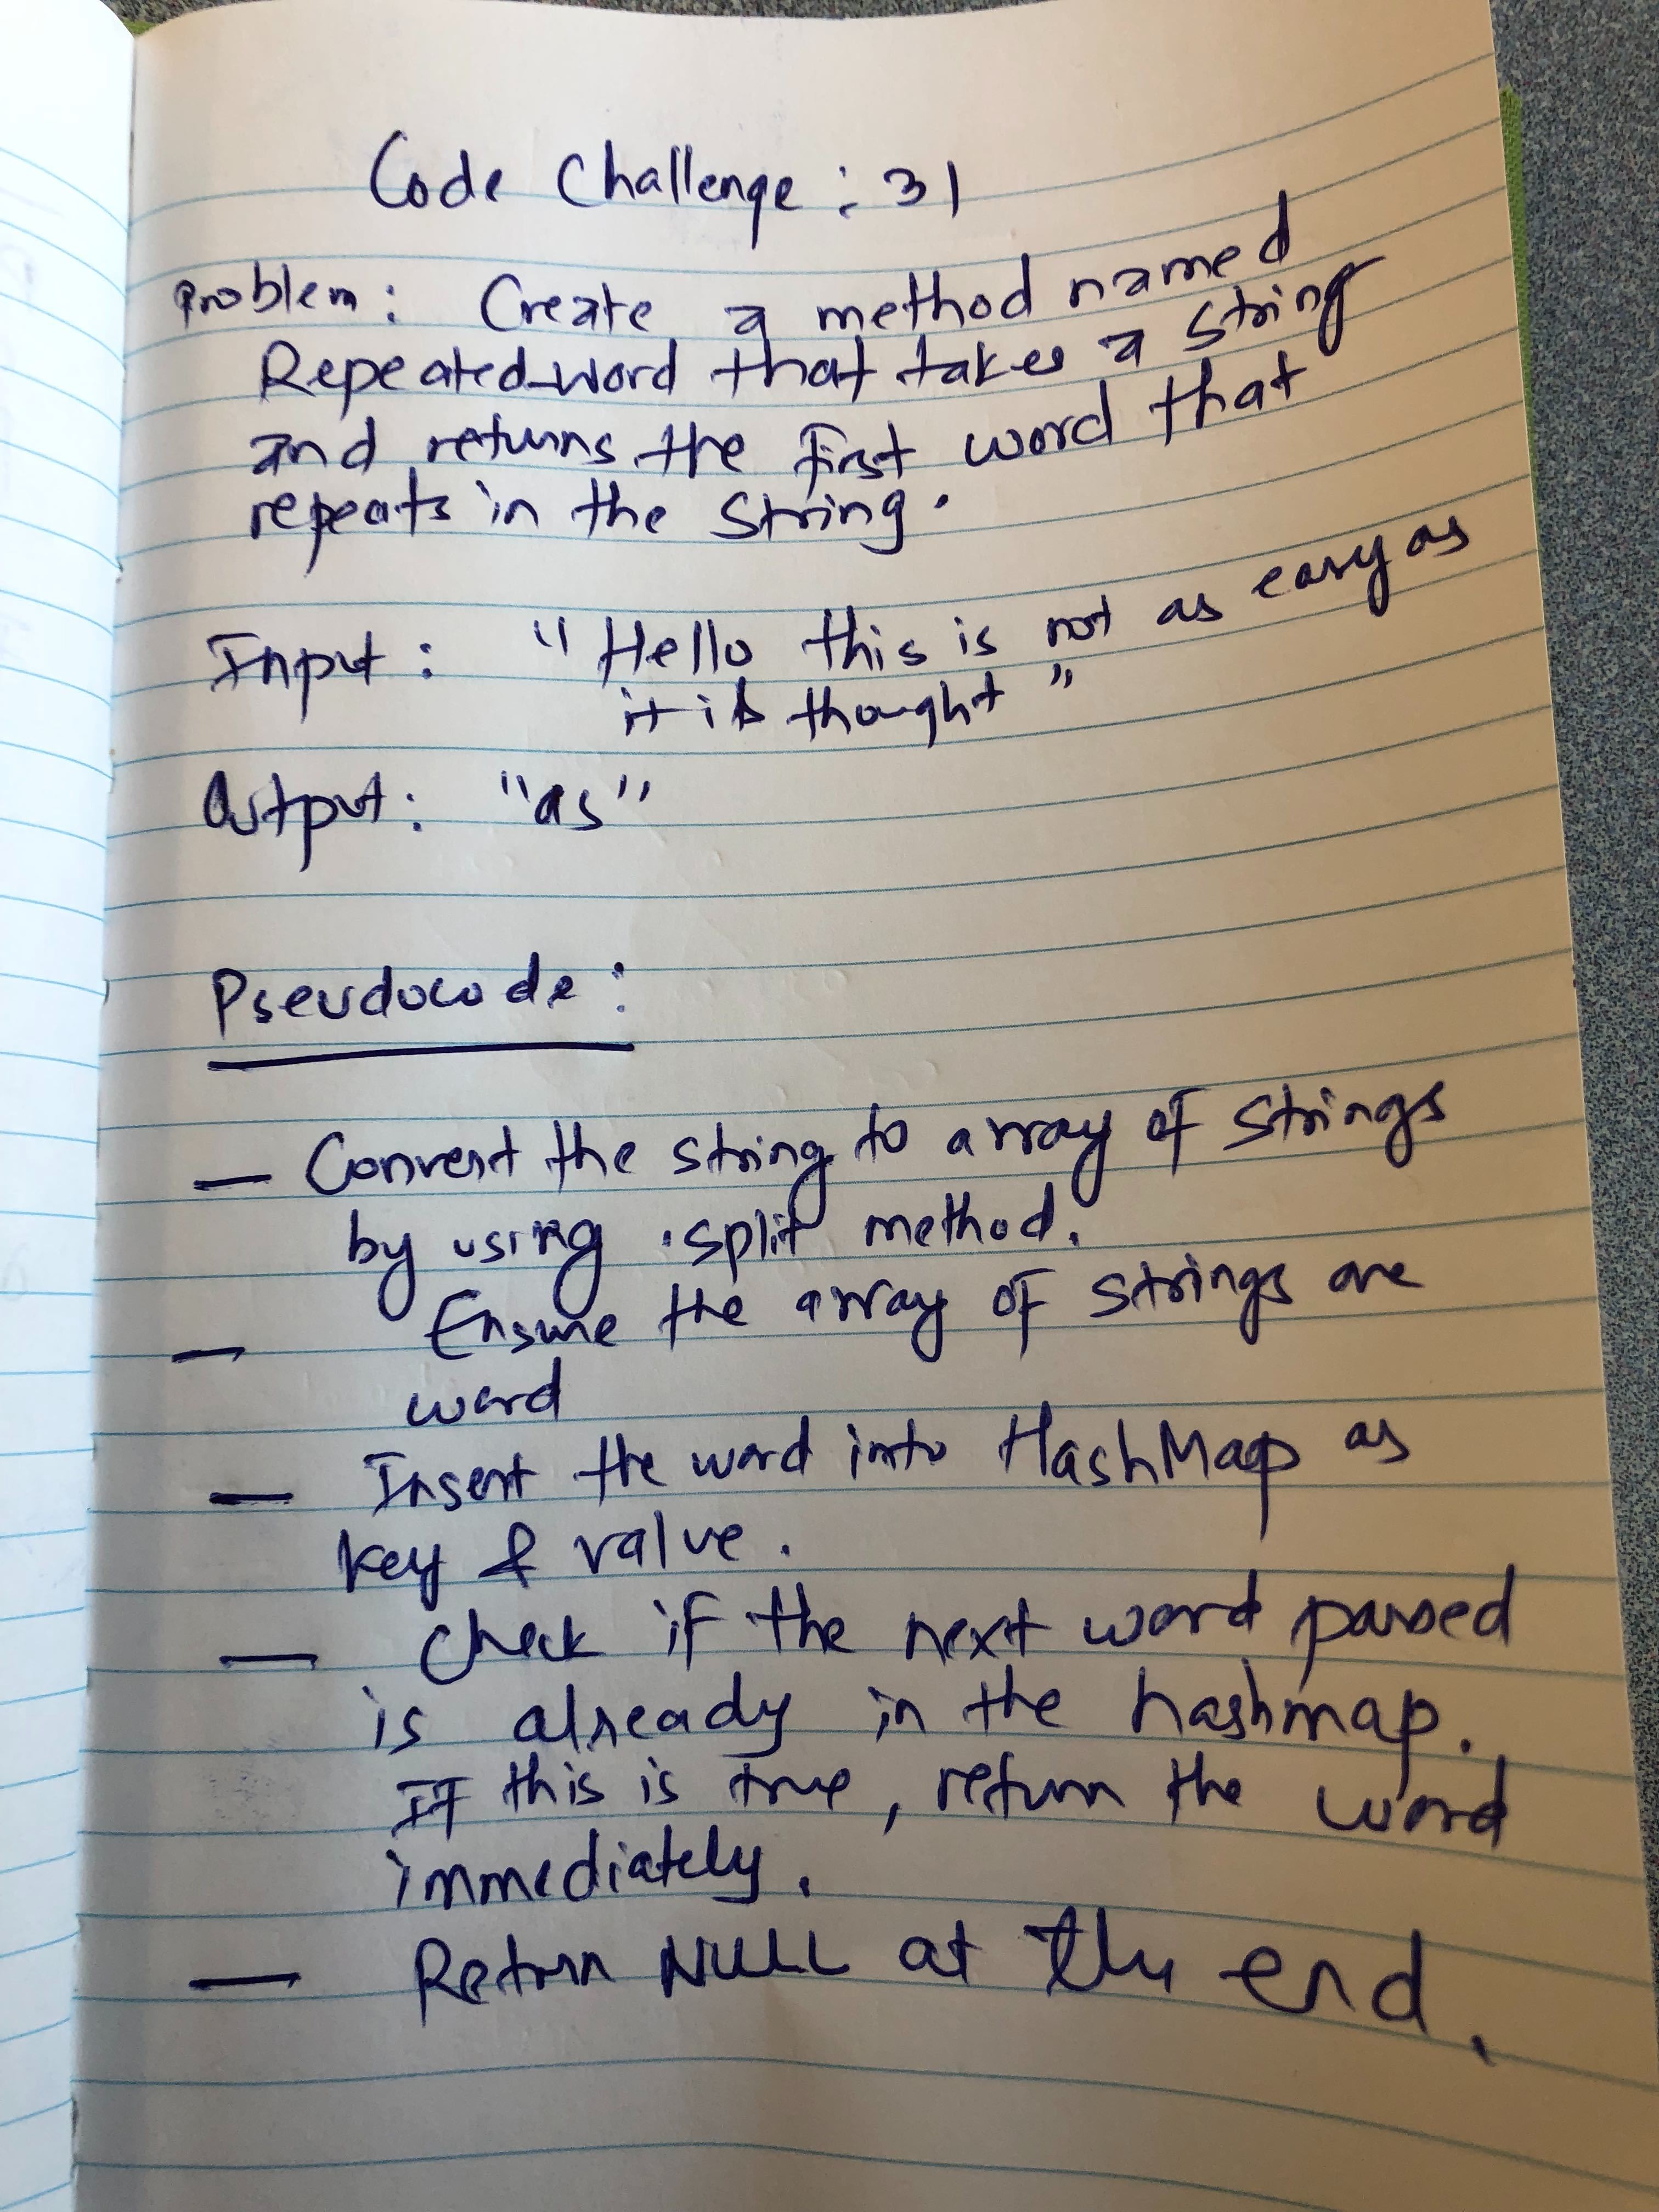 Code Challenge : 31
Problem : Create a method named
Repeated-word that takes a string
and returns the first word that
repeats in the string.
Input : "Hello this is not as easy as
it is thought"
Output : "as"
Pseudocode :
— Convert the string to array of strings
by using .split method.
— Ensure the array of strings are
word
— Insert the word into HashMap as
key & value.
— Check if the next word parsed
is already in the hashmap.
If this is true, return the word
immediately.
— Return NULL at the end.